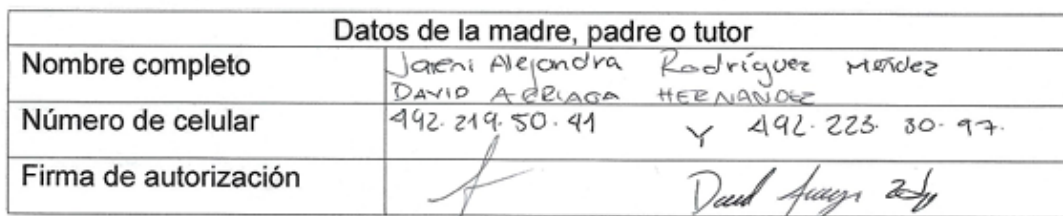 Datos de la madre, padre o tutor
Nombre completo Jareni Alejandra Rodríguez Méndez
DAVID ARRIAGA HERNANDEZ
Número de celular 492.219.50.41 Y 492.223.30.97.
Firma de autorización David